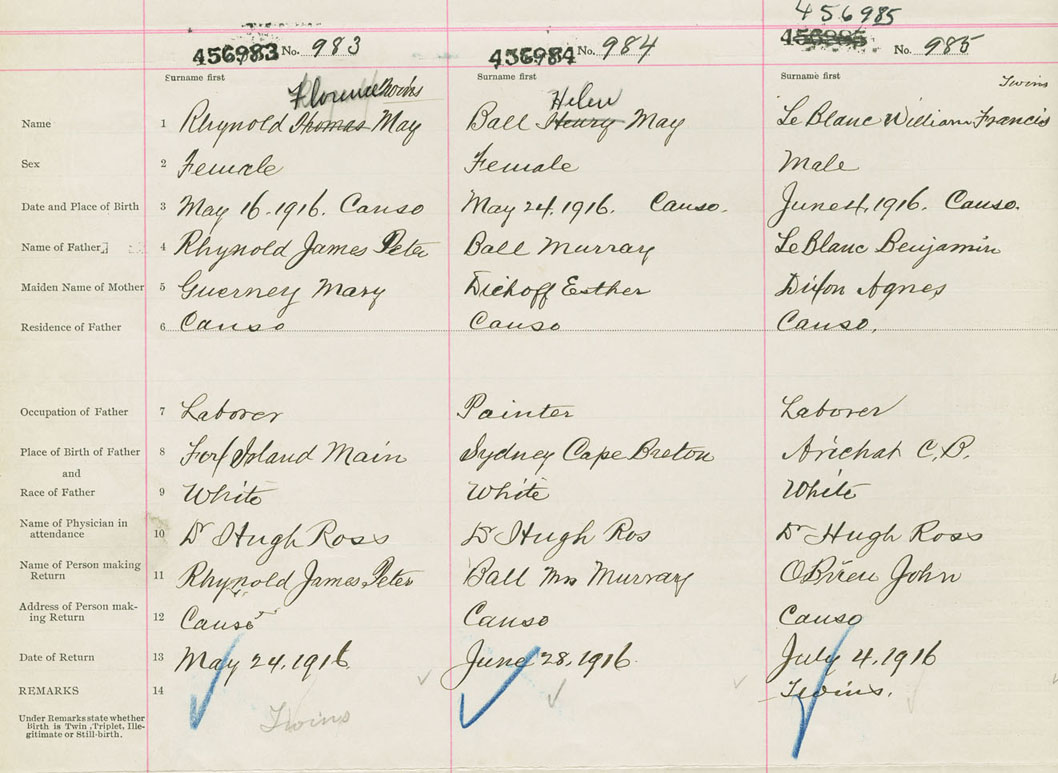 456985
456983 No. 983 456984 No. 984 456985 No. 985
Surname first Surname first Surname first
Florence Twins Helen Twins
Name 1 Rhynold Thomas May Ball Henry May Le Blanc William Francis
Sex 2 Female Female Male
Date and Place of Birth 3 May 16. 1916. Canso May 24. 1916. Canso. June 4, 1916. Canso.
Name of Father 4 Rhynold James Peter Ball Murray Le Blanc Benjamin
Maiden Name of Mother 5 Guerney Mary Dickoff Esther Dixon Agnes
Residence of Father 6 Canso Canso Canso.
Occupation of Father 7 Laborer Painter Laborer
Place of Birth of Father 8 Fox Island Main Sydney Cape Breton Arichat C.B.
and
Race of Father 9 White White White
Name of Physician in
attendance 10 Dr Hugh Ross Dr Hugh Ros Dr Hugh Ross
Name of Person making
Return 11 Rhynold James Peter Ball Mrs Murray OBrien John
Address of Person mak-
ing Return 12 Canso Canso Canso
Date of Return 13 May 24, 1916. June 28, 1916. July 4, 1916
REMARKS 14 Twins.
Under Remarks state whether
Birth is Twin, Triplet, Ille-
gitimate or Still-birth.
Twins